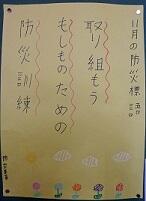 11月の防災標語
取り組もう
もしものための
防災訓練